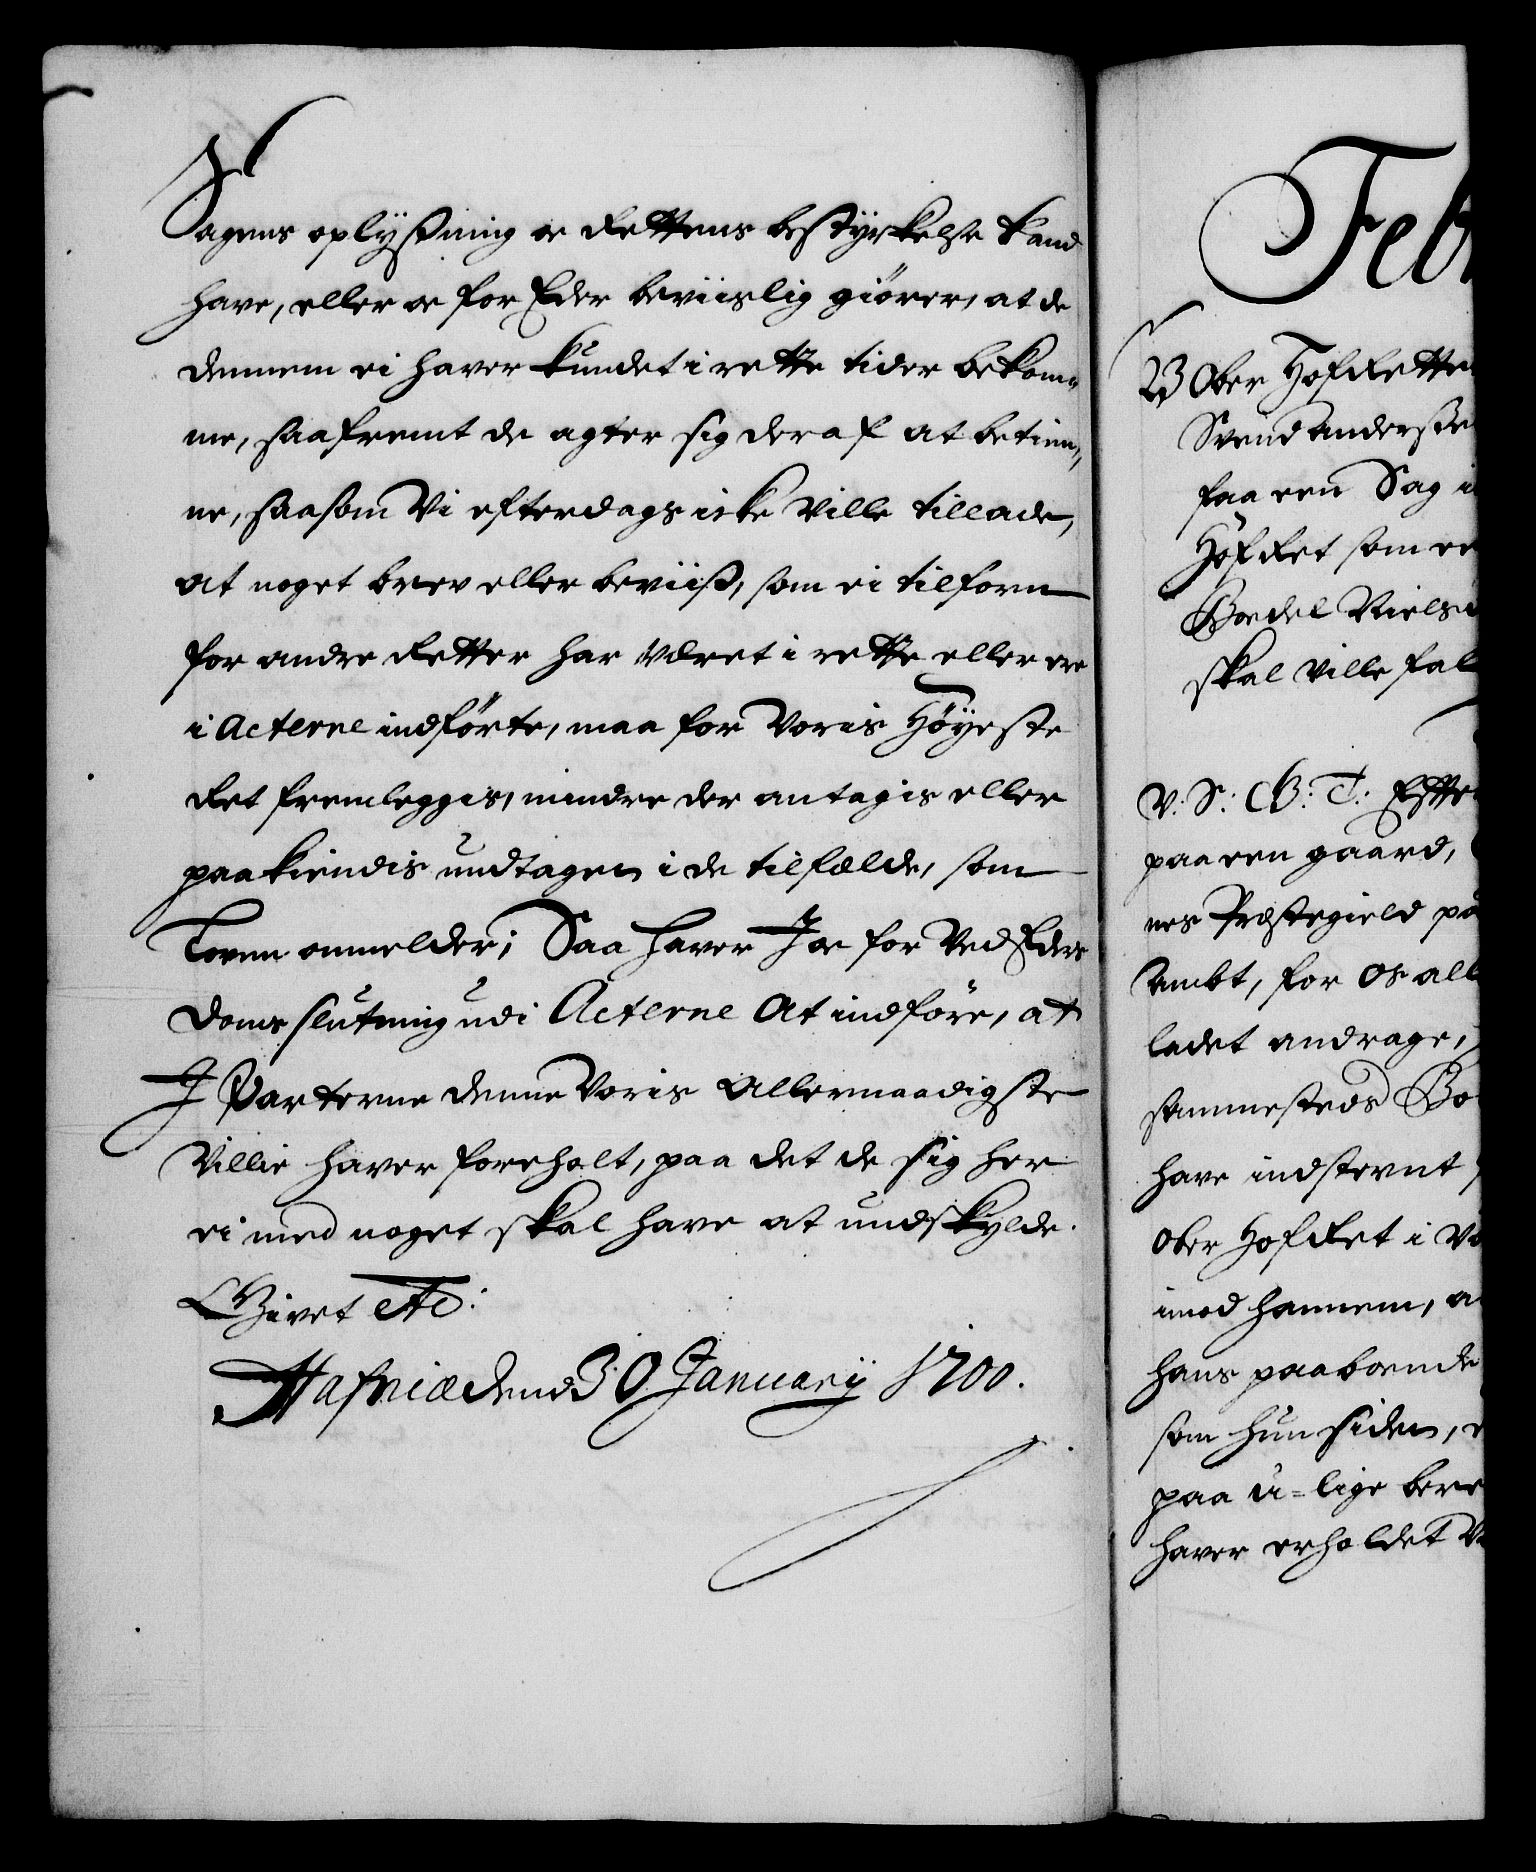 Sagens oplysßning oc Rettens bestyrkelse kand
have, eller oc for Eder beviislig giører, at de
dennem ei haver kundet i rette tider bekom¬
me, saafremt de agter sig deraf at betien¬
ne, saasom Vi efterdags icke ville tillade,
at noget brev eller beviiß, som ei tilforn
for andre Retter har været i rette eller ere
i Acterne indførte, maa for Voris Høyeste
Ret fremleggis, mindre der antagis eller
paakiendis undtagen i de tilfælde, som
Loven ommelder; Saa haver I oc for ved Eders
Doms slutning udi Acterne at indføre, at
I Parterne denne Voris Allernaadigste
Villie haver foreholt, paa det de sig her
ei med noget skal have at undskylde.
Givet etc:
Hafniæ dend 30 Januarij 1700.
Febr
Ober HofRette
Svend Anderße
faa een Sag i
HofRet som er
Boedel Niels
skal ville fal
V: S: G: T: Efte
paa een gaard,
nes Præstegield på
Ambt, for os all
ladet andrage,
sammesteds Bo
have indstevnt
Ober HofRet i V
imod hannem, a
hans paaboende
som hun siden,
paa u=lige bere
haver erholdet V